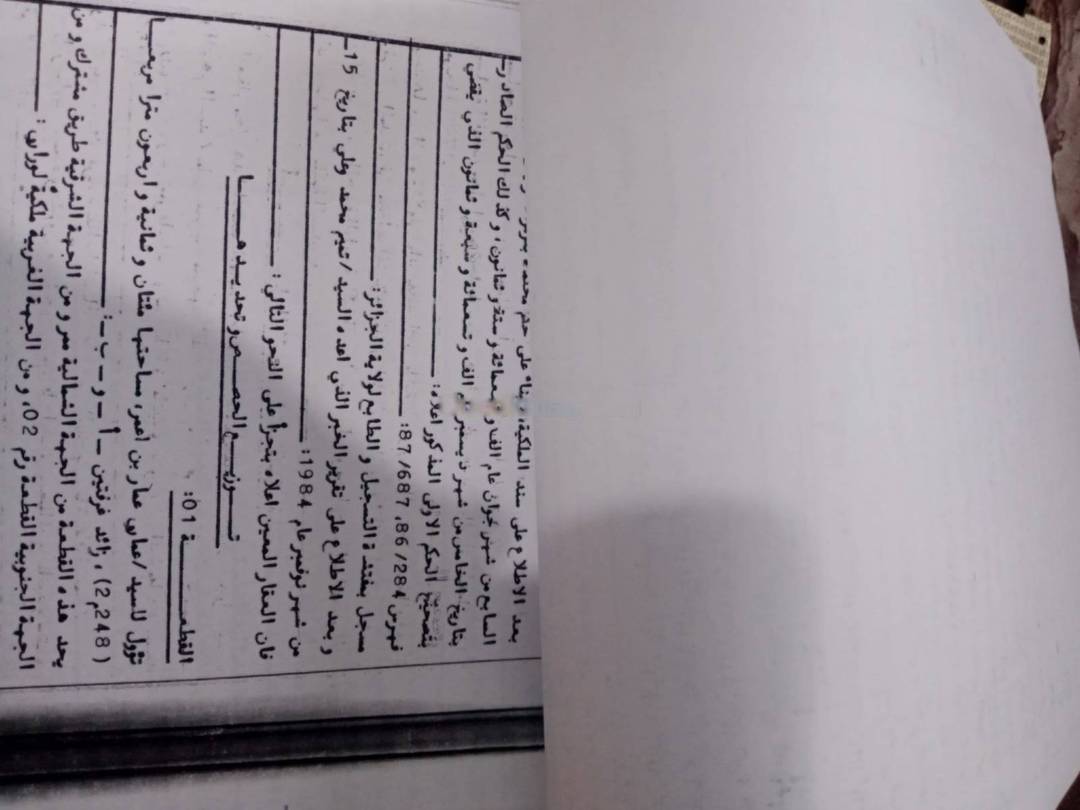 بعد الاطلاع على سند الملكية، بناء على حكم محكمة
السابع من شهر جوان عام الف و تسعمائة و ستة و ثمانون، و كذلك الحكم الصادر
بتاريخ الخامس من شهر ديسمبر عام الف و تسعمائة و سبعة و ثمانون الذي يقضي
بتصحيح الحكم الاولى المذكور اعلاه:
فهرس 86/284، 87/687:
مسجل بمفتشية التسجيل و الطابع لولاية الجزائر:
و بعد الاطلاع على تقرير الخبر الذي اعده السيد/ تميم محمد وعلي بتاريخ 15
من شهر نوفمبر عام 1984:
فان العقار المعين اعلاه يتجزأ على النحو التالي:
تـــوزيـــع الحصـــص و تحديـــدهـــا
القطعـــــة 01:
تؤول للسيد/ عماري عمار بن اعمر، مساحتها مئتان و ثمانية و اربعون مترا مربعـا
(248م2)، زائد غرفتين -أ- و -ب-:
يحد هذه القطعة من الجهة الشمالية ممر و من الجهة الشرقية طريق مشترك و من
الجهة الجنوبية القطعة رقم 02، و من الجهة الغربية ملكية لوراي: